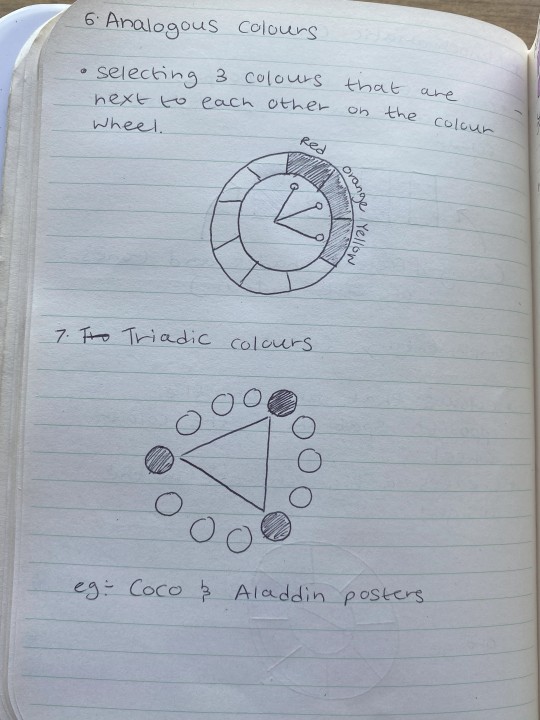 6. Analogous colours
• selecting 3 colours that are
next to each other on the colour
wheel.
Red
orange
Yellow
7. Triadic colours
eg:- Coco & Aladdin posters